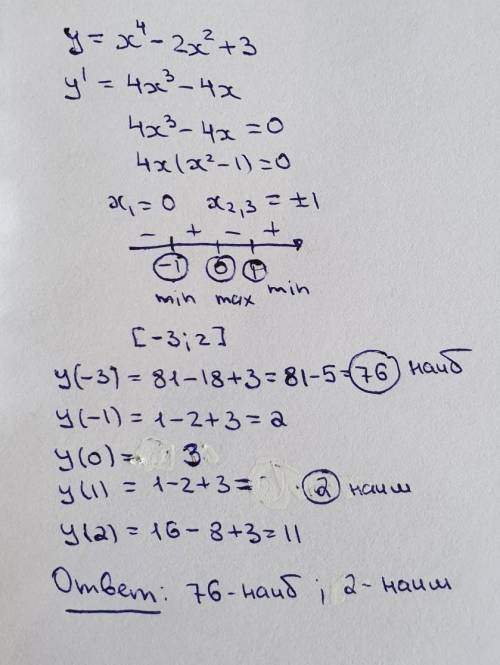 y = x⁴ - 2x² + 3
y' = 4x³ - 4x
4x³ - 4x = 0
4x(x² - 1) = 0
x₁ = 0 x₂,₃ = ±1
- + - +
-1 0 1
min max min
[-3; 2]
y(-3) = 81 - 18 + 3 = 81 - 5 = 76 наиб
y(-1) = 1 - 2 + 3 = 2
y(0) = 3
y(1) = 1 - 2 + 3 = 2 наим
y(2) = 16 - 8 + 3 = 11
Ответ: 76 - наиб ; 2 - наим